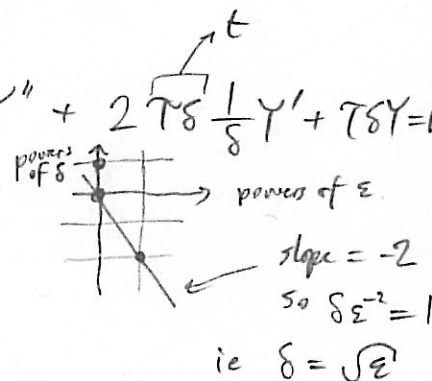 t
Y'' + 2 Tδ 1/δ Y' + TδY = 1
powers of δ
powers of ε
slope = -2
so δε⁻² = 1
ie δ = √ε